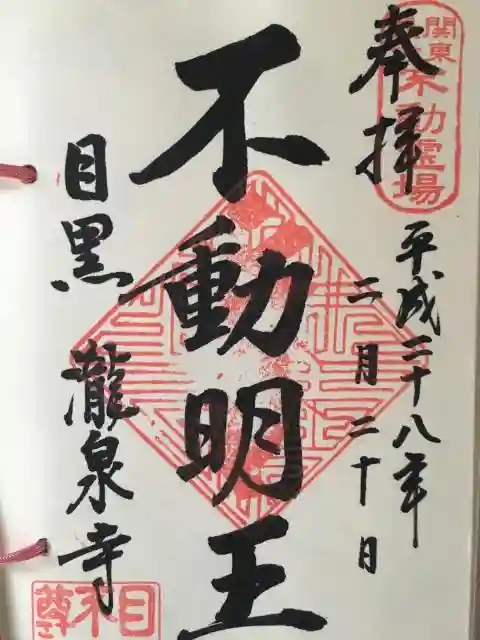 奉拝
関東
不動霊場
平成二十八年
二月二十日
不動明王
目黒 瀧泉寺
目不尊